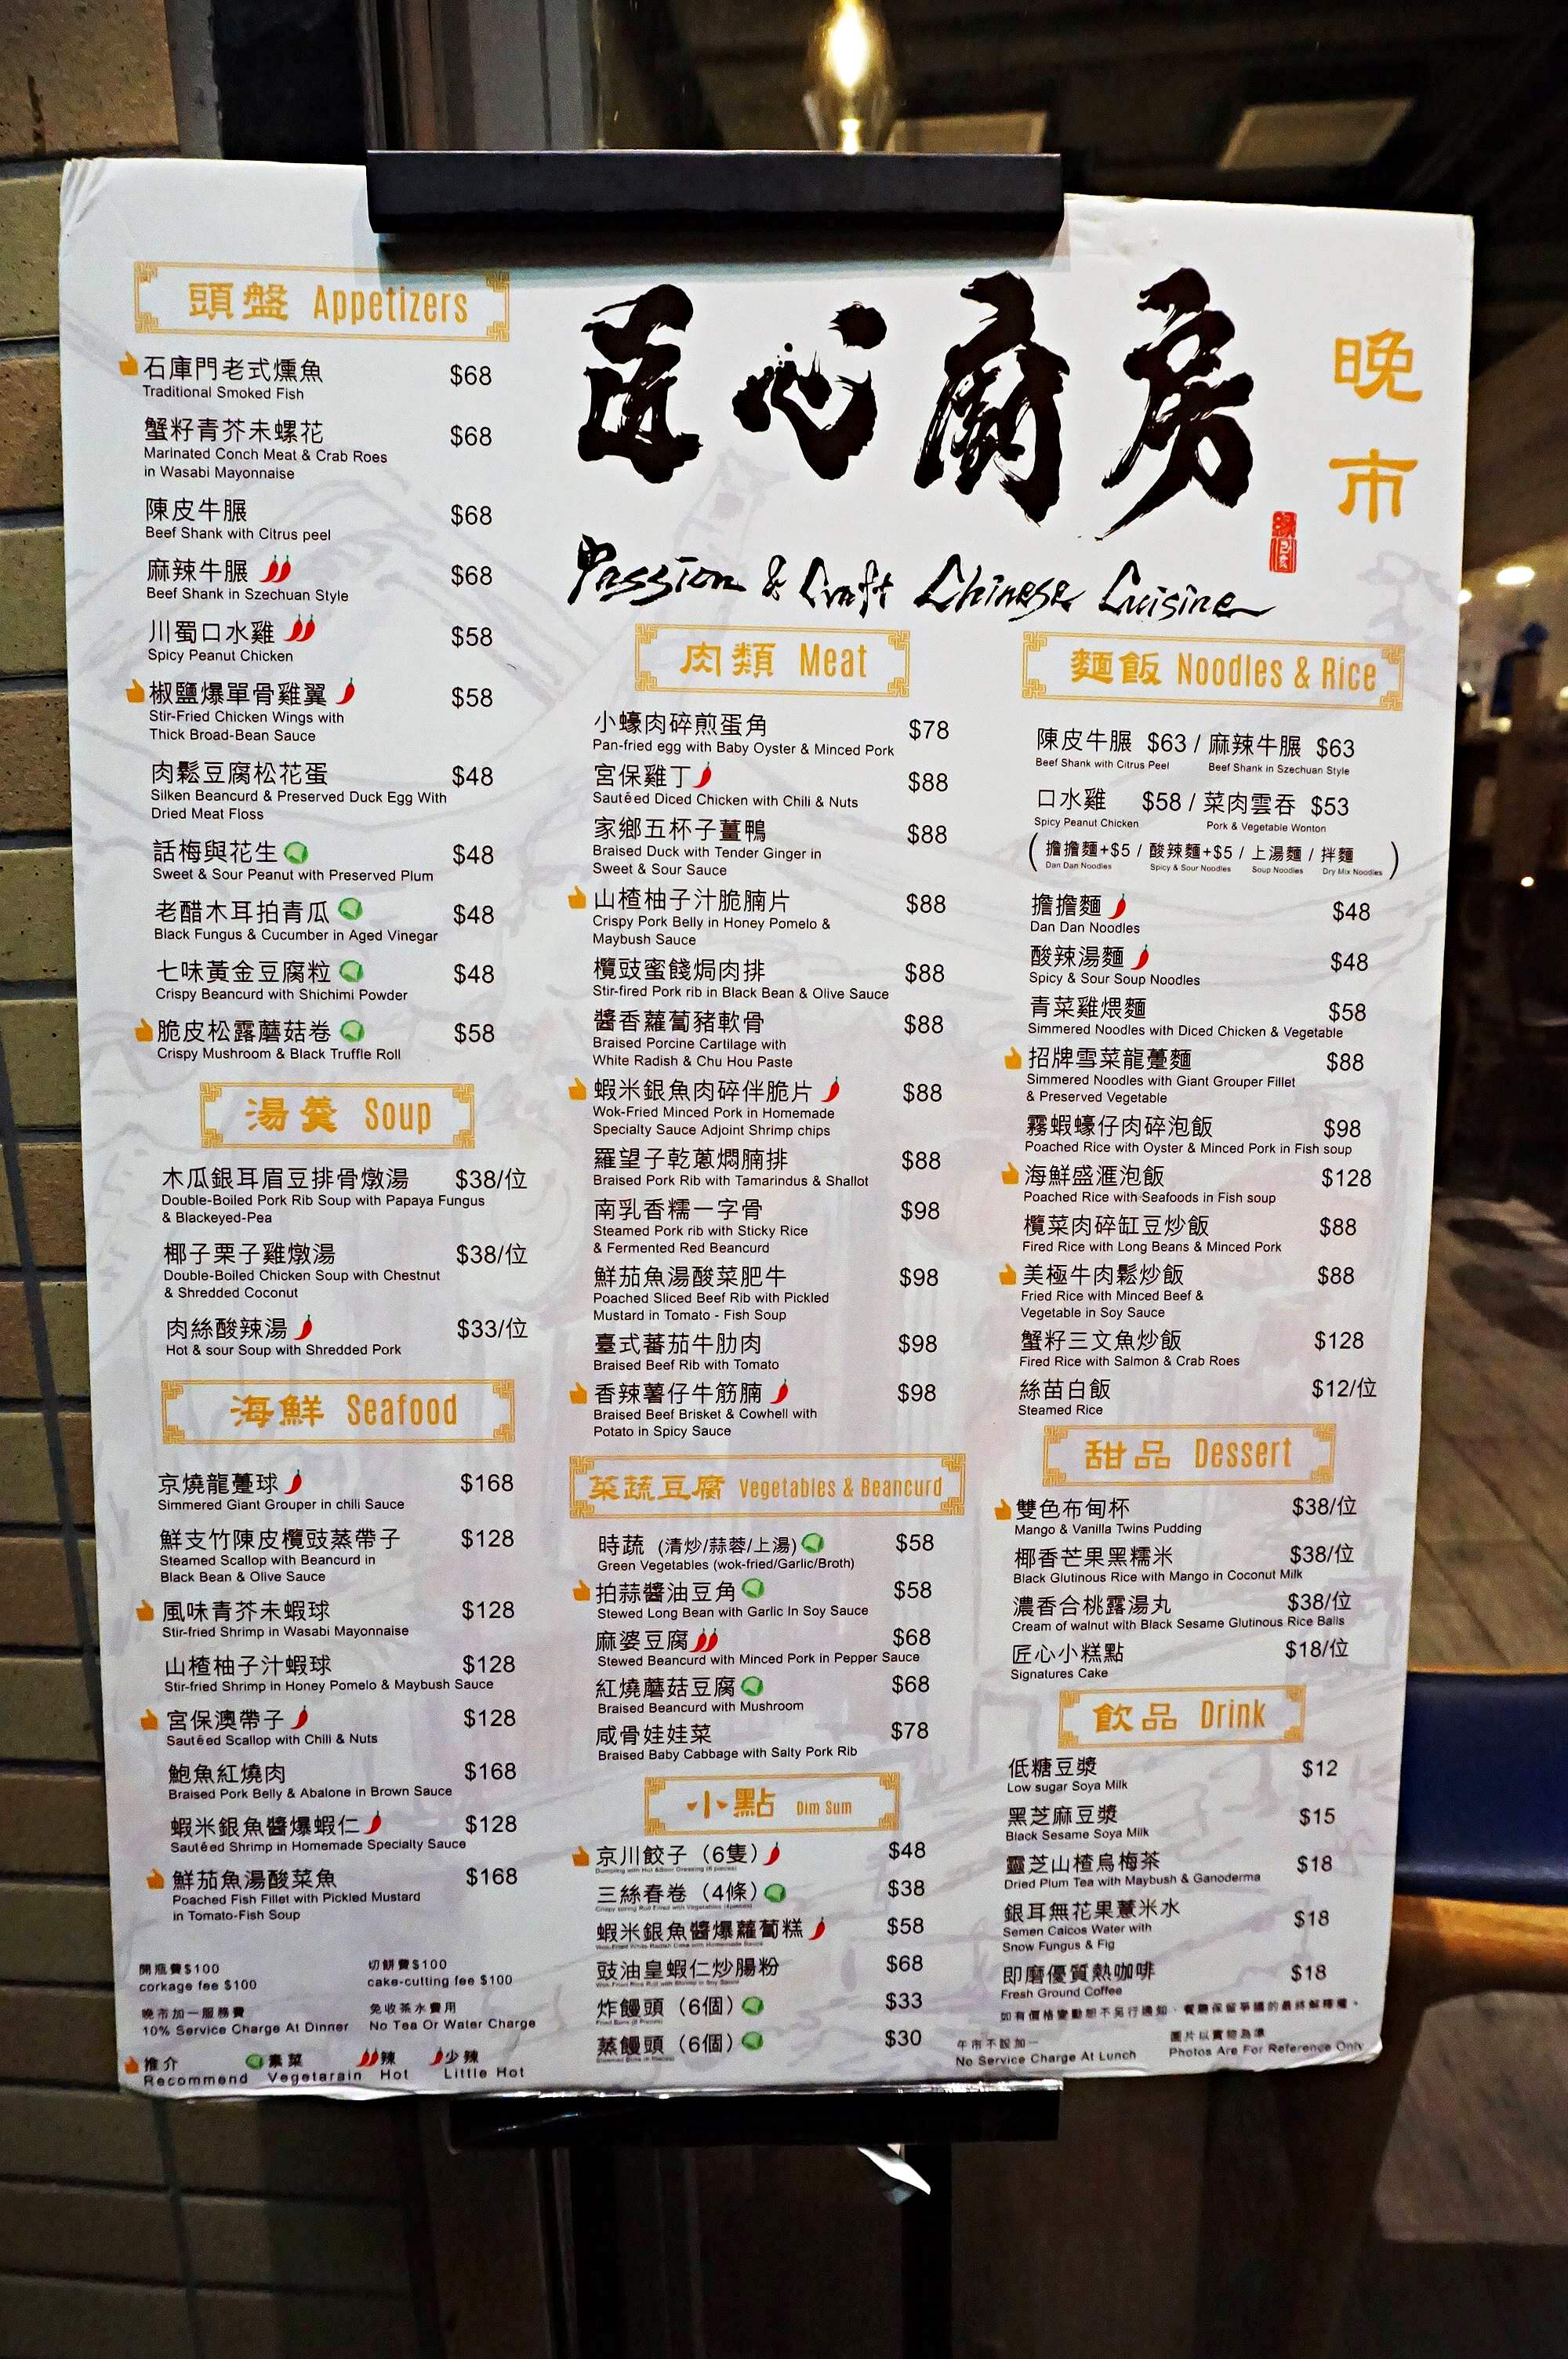 匠心廚房
晚市
Passion & Craft Chinese Cuisine
頭盤 Appetizers
石庫門老式燻魚 $68
Traditional Smoked Fish
蟹籽青芥未螺花 $68
Marinated Conch Meat & Crab Roes
in Wasabi Mayonnaise
陳皮牛𦟌 $68
Beef Shank with Citrus peel
麻辣牛𦟌 $68
Beef Shank in Szechuan Style
川蜀口水雞 $58
Spicy Peanut Chicken
椒鹽爆單骨雞翼 $58
Stir-Fried Chicken Wings with
Thick Broad-Bean Sauce
肉鬆豆腐松花蛋 $48
Silken Beancurd & Preserved Duck Egg With
Dried Meat Floss
話梅與花生 $48
Sweet & Sour Peanut with Preserved Plum
老醋木耳拍青瓜 $48
Black Fungus & Cucumber in Aged Vinegar
七味黃金豆腐粒 $48
Crispy Beancurd with Shichimi Powder
脆皮松露蘑菇卷 $58
Crispy Mushroom & Black Truffle Roll
湯羹 Soup
木瓜銀耳眉豆排骨燉湯 $38/位
Double-Boiled Pork Rib Soup with Papaya Fungus
& Blackeyed-Pea
椰子栗子雞燉湯 $38/位
Double-Boiled Chicken Soup with Chestnut
& Shredded Coconut
肉絲酸辣湯 $33/位
Hot & sour Soup with Shredded Pork
海鮮 Seafood
京燒龍躉球 $168
Simmered Giant Grouper in chili Sauce
鮮支竹陳皮欖豉蒸帶子 $128
Steamed Scallop with Beancurd in
Black Bean & Olive Sauce
風味青芥未蝦球 $128
Stir-fried Shrimp in Wasabi Mayonnaise
山楂柚子汁蝦球 $128
Stir-fried Shrimp in Honey Pomelo & Maybush Sauce
宮保澳帶子 $128
Sautéed Scallop with Chili & Nuts
鮑魚紅燒肉 $168
Braised Pork Belly & Abalone in Brown Sauce
蝦米銀魚醬爆蝦仁 $128
Sautéed Shrimp in Homemade Specialty Sauce
鮮茄魚湯酸菜魚 $168
Poached Fish Fillet with Pickled Mustard
in Tomato-Fish Soup
開瓶費$100 切餅費$100
corkage fee $100 cake-cutting fee $100
晚市加一服務費 免收茶水費用
10% Service Charge At Dinner No Tea Or Water Charge
推介 素菜 辣 少辣
Recommend Vegetarain Hot Little Hot
肉類 Meat
小蠔肉碎煎蛋角 $78
Pan-fried egg with Baby Oyster & Minced Pork
宮保雞丁 $88
Sautéed Diced Chicken with Chili & Nuts
家鄉五杯子薑鴨 $88
Braised Duck with Tender Ginger in
Sweet & Sour Sauce
山楂柚子汁脆腩片 $88
Crispy Pork Belly in Honey Pomelo &
Maybush Sauce
欖豉蜜餞焗肉排 $88
Stir-fired Pork rib in Black Bean & Olive Sauce
醬香蘿蔔豬軟骨 $88
Braised Porcine Cartilage with
White Radish & Chu Hou Paste
蝦米銀魚肉碎伴脆片 $88
Wok-Fried Minced Pork in Homemade
Specialty Sauce Adjoint Shrimp chips
羅望子乾蔥燜腩排 $88
Braised Pork Rib with Tamarindus & Shallot
南乳香糯一字骨 $98
Steamed Pork rib with Sticky Rice
& Fermented Red Beancurd
鮮茄魚湯酸菜肥牛 $98
Poached Sliced Beef Rib with Pickled
Mustard in Tomato - Fish Soup
臺式蕃茄牛肋肉 $98
Braised Beef Rib with Tomato
香辣薯仔牛筋腩 $98
Braised Beef Brisket & Cowhell with
Potato in Spicy Sauce
菜蔬豆腐 Vegetables & Beancurd
時蔬 (清炒/蒜蓉/上湯) $58
Green Vegetables (wok-fried/Garlic/Broth)
拍蒜醬油豆角 $58
Stewed Long Bean with Garlic In Soy Sauce
麻婆豆腐 $68
Stewed Beancurd with Minced Pork in Pepper Sauce
紅燒蘑菇豆腐 $68
Braised Beancurd with Mushroom
咸骨娃娃菜 $78
Braised Baby Cabbage with Salty Pork Rib
小點 Dim Sum
京川餃子 (6隻) $48
三絲春卷 (4條) $38
蝦米銀魚醬爆蘿蔔糕 $58
豉油皇蝦仁炒腸粉 $68
炸饅頭 (6個) $33
蒸饅頭 (6個) $30
麵飯 Noodles & Rice
陳皮牛𦟌 $63 / 麻辣牛𦟌 $63
Beef Shank with Citrus Peel Beef Shank in Szechuan Style
口水雞 $58 / 菜肉雲吞 $53
Spicy Peanut Chicken Pork & Vegetable Wonton
(擔擔麵+$5 / 酸辣麵+$5 / 上湯麵 / 拌麵)
Dan Dan Noodles Spicy & Sour Noodles Soup Noodles Dry Mix Noodles
擔擔麵 $48
Dan Dan Noodles
酸辣湯麵 $48
Spicy & Sour Soup Noodles
青菜雞煨麵 $58
Simmered Noodles with Diced Chicken & Vegetable
招牌雪菜龍躉麵 $88
Simmered Noodles with Giant Grouper Fillet
& Preserved Vegetable
霧蝦蠔仔肉碎泡飯 $98
Poached Rice with Oyster & Minced Pork in Fish soup
海鮮盛滙泡飯 $128
Poached Rice with Seafoods in Fish soup
欖菜肉碎缸豆炒飯 $88
Fired Rice with Long Beans & Minced Pork
美極牛肉鬆炒飯 $88
Fried Rice with Minced Beef &
Vegetable in Soy Sauce
蟹籽三文魚炒飯 $128
Fired Rice with Salmon & Crab Roes
絲苗白飯 $12/位
Steamed Rice
甜品 Dessert
雙色布甸杯 $38/位
Mango & Vanilla Twins Pudding
椰香芒果黑糯米 $38/位
Black Glutinous Rice with Mango in Coconut Milk
濃香合桃露湯丸 $38/位
Cream of walnut with Black Sesame Glutinous Rice Balls
匠心小糕點 $18/位
Signatures Cake
飲品 Drink
低糖豆漿 $12
Low sugar Soya Milk
黑芝麻豆漿 $15
Black Sesame Soya Milk
靈芝山楂烏梅茶 $18
Dried Plum Tea with Maybush & Ganoderma
銀耳無花果薏米水 $18
Semen Caicos Water with
Snow Fungus & Fig
即磨優質熱咖啡 $18
Fresh Ground Coffee
如有價格變動恕不另行通知，餐廳保留爭議的最終解釋權。
午市不設加一 圖片以實物為準
No Service Charge At Lunch Photos Are For Reference Only